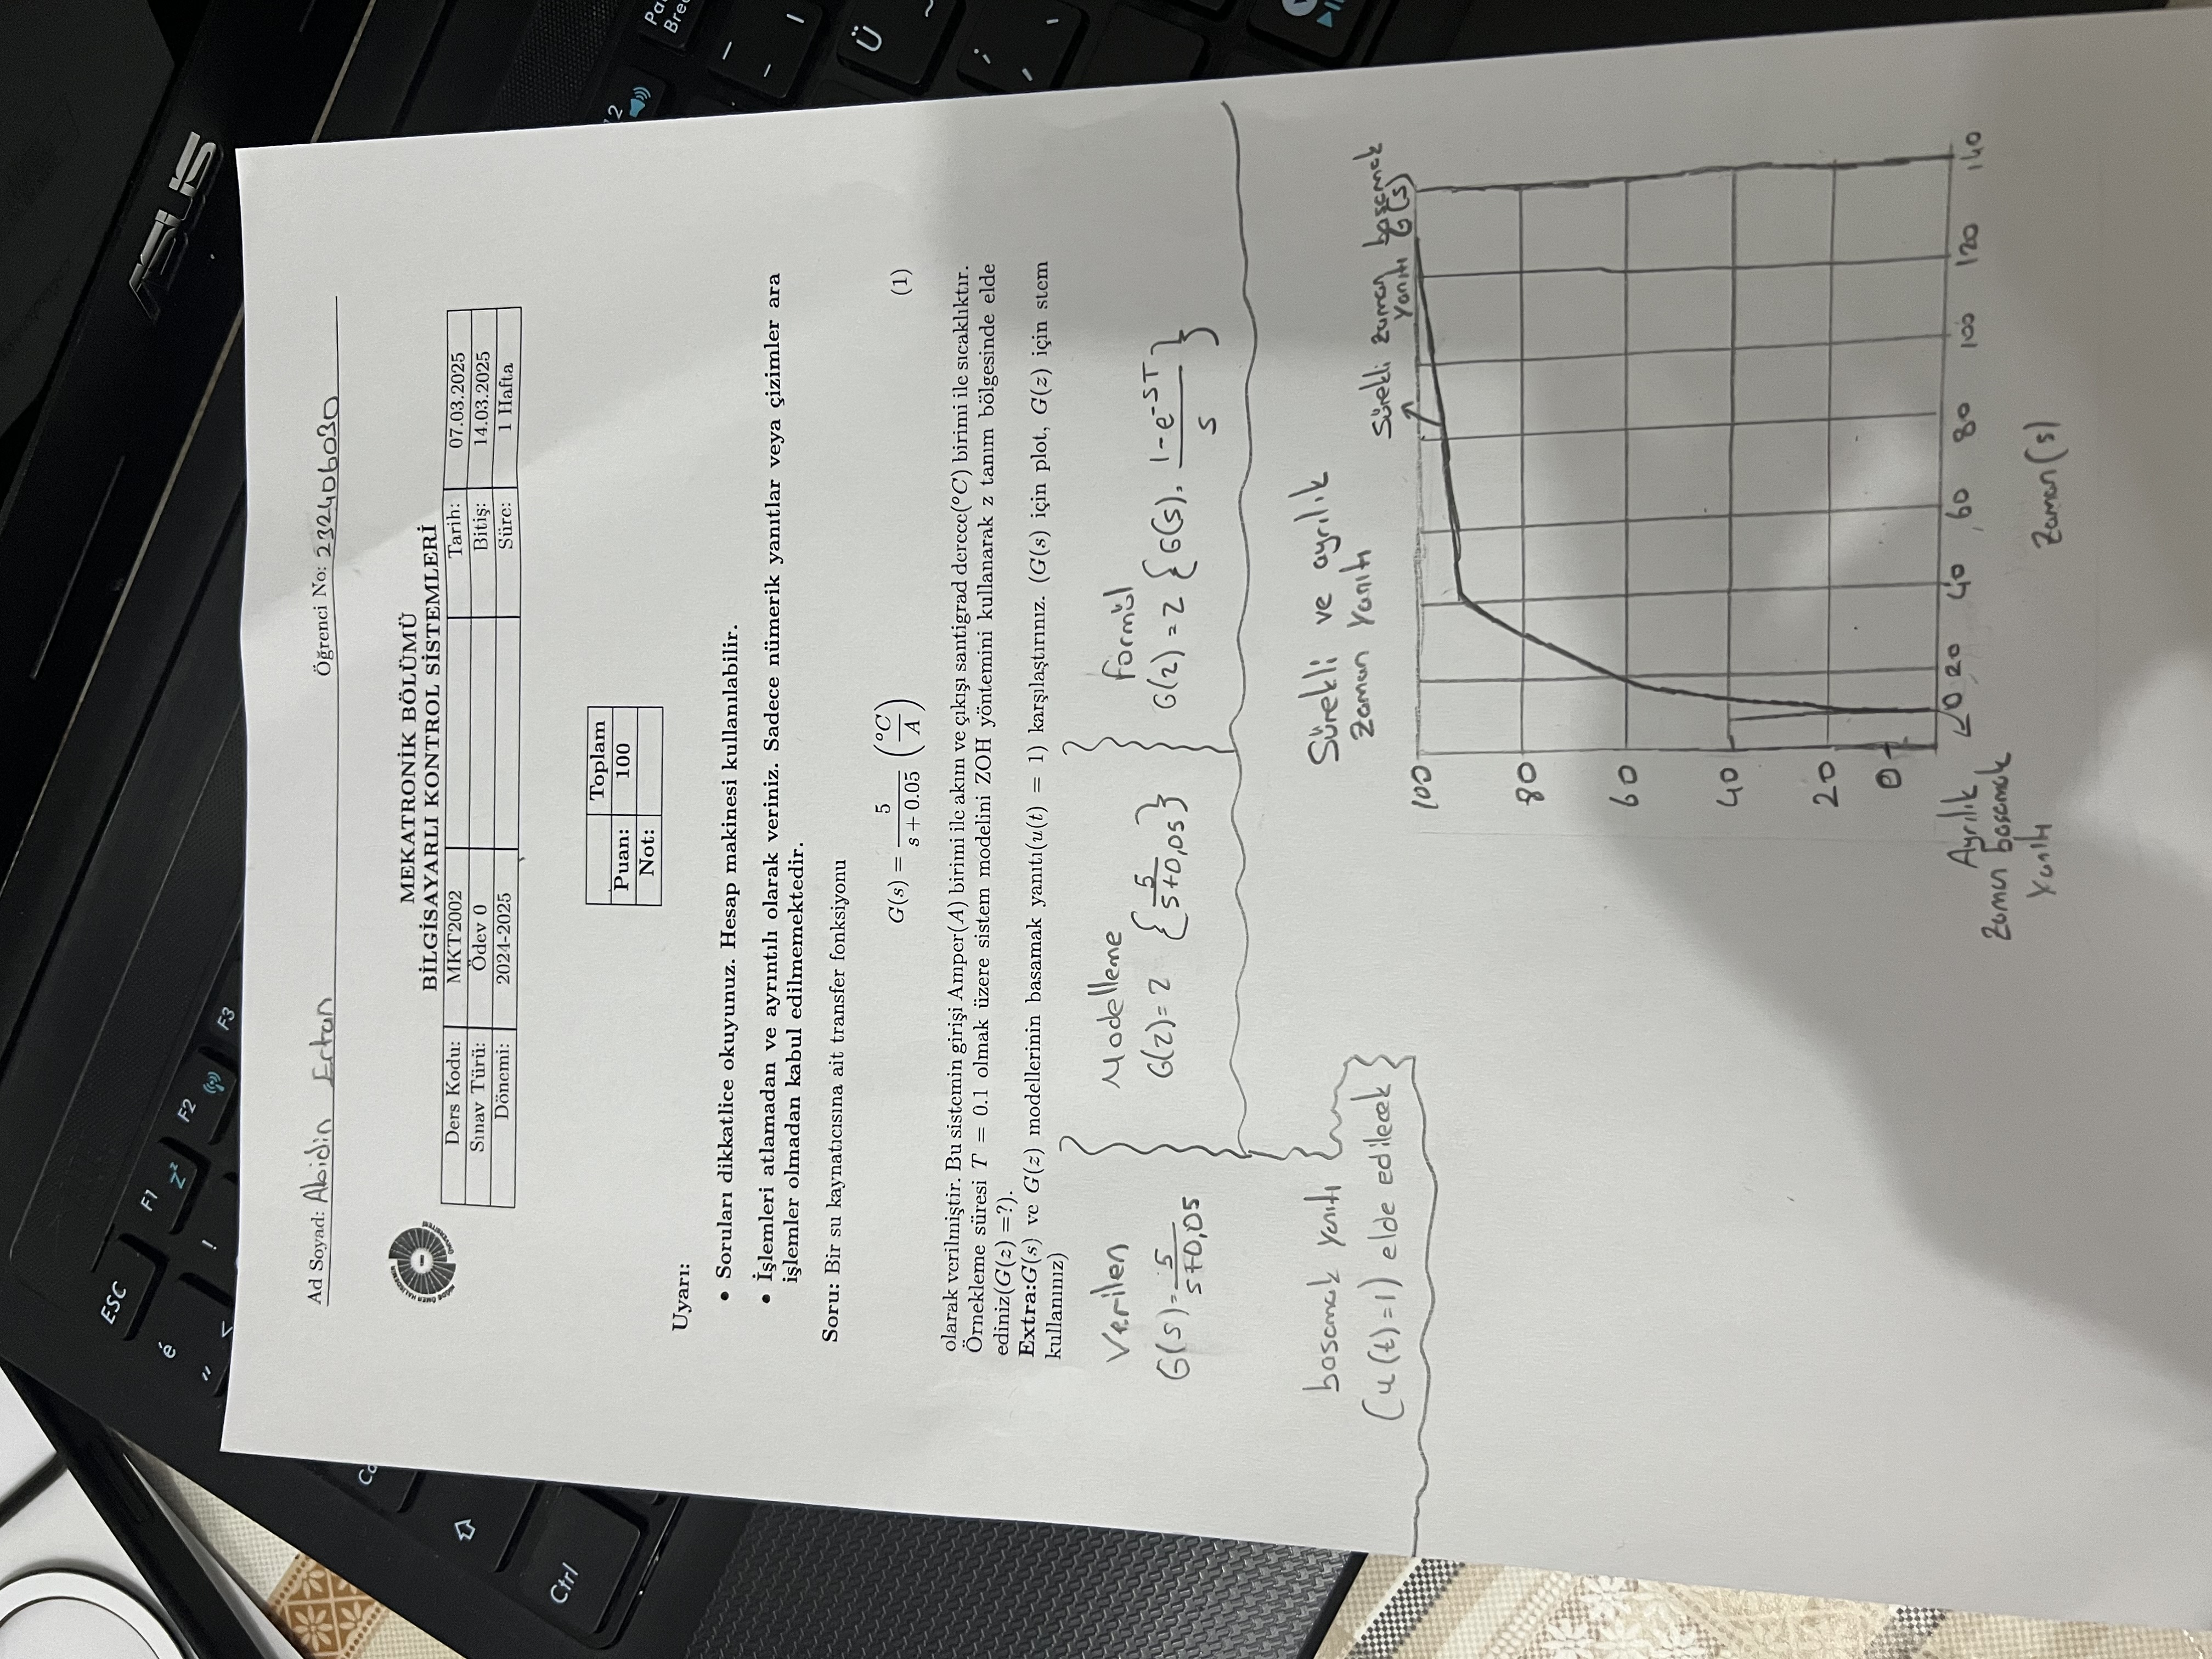 ASUS
ESC
é
"
<
!
F1
Zz
F2
F3
Ctrl
Ü
Ad Soyad: Abidin Ertan Öğrenci No: 232406030
MEKATRONİK BÖLÜMÜ
BİLGİSAYARLI KONTROL SİSTEMLERİ
Ders Kodu: MKT2002 Tarih: 07.03.2025
Sınav Türü: Ödev 0 Bitiş: 14.03.2025
Dönemi: 2024-2025 Süre: 1 Hafta
Toplam
Puan: 100
Not:
Uyarı:
• Soruları dikkatlice okuyunuz. Hesap makinesi kullanılabilir.
• İşlemleri atlamadan ve ayrıntılı olarak veriniz. Sadece nümerik yanıtlar veya çizimler ara
işlemler olmadan kabul edilmemektedir.
Soru: Bir su kaynatıcısına ait transfer fonksiyonu
G(s) = 5 / (s + 0.05) (°C / A) (1)
olarak verilmiştir. Bu sistemin girişi Amper(A) birimi ile akım ve çıkışı santigrad derece(°C) birimi ile sıcaklıktır.
Örnekleme süresi T = 0.1 olmak üzere sistem modelini ZOH yöntemini kullanarak z tanım bölgesinde elde
ediniz(G(z) =?).
Extra:G(s) ve G(z) modellerinin basamak yanıtı(u(t) = 1) karşılaştırınız. (G(s) için plot, G(z) için stem
kullanınız)
Verilen
G(s)= 5 / s+0,05
Modelleme
G(z)= z { 5 / s+0,05 }
formül
G(z) = z { G(s). 1-e^-sT / s }
basamak yanıtı
(u(t)=1) elde edilecek
Sürekli ve ayrılık
Zaman Yanıtı
Sürekli zaman basamak
yanıtı G(s)
100
80
60
40
20
0
0 20 40 60 80 100 120 140
Ayrılık
Zaman basamak
Yanıtı
Zaman (s)